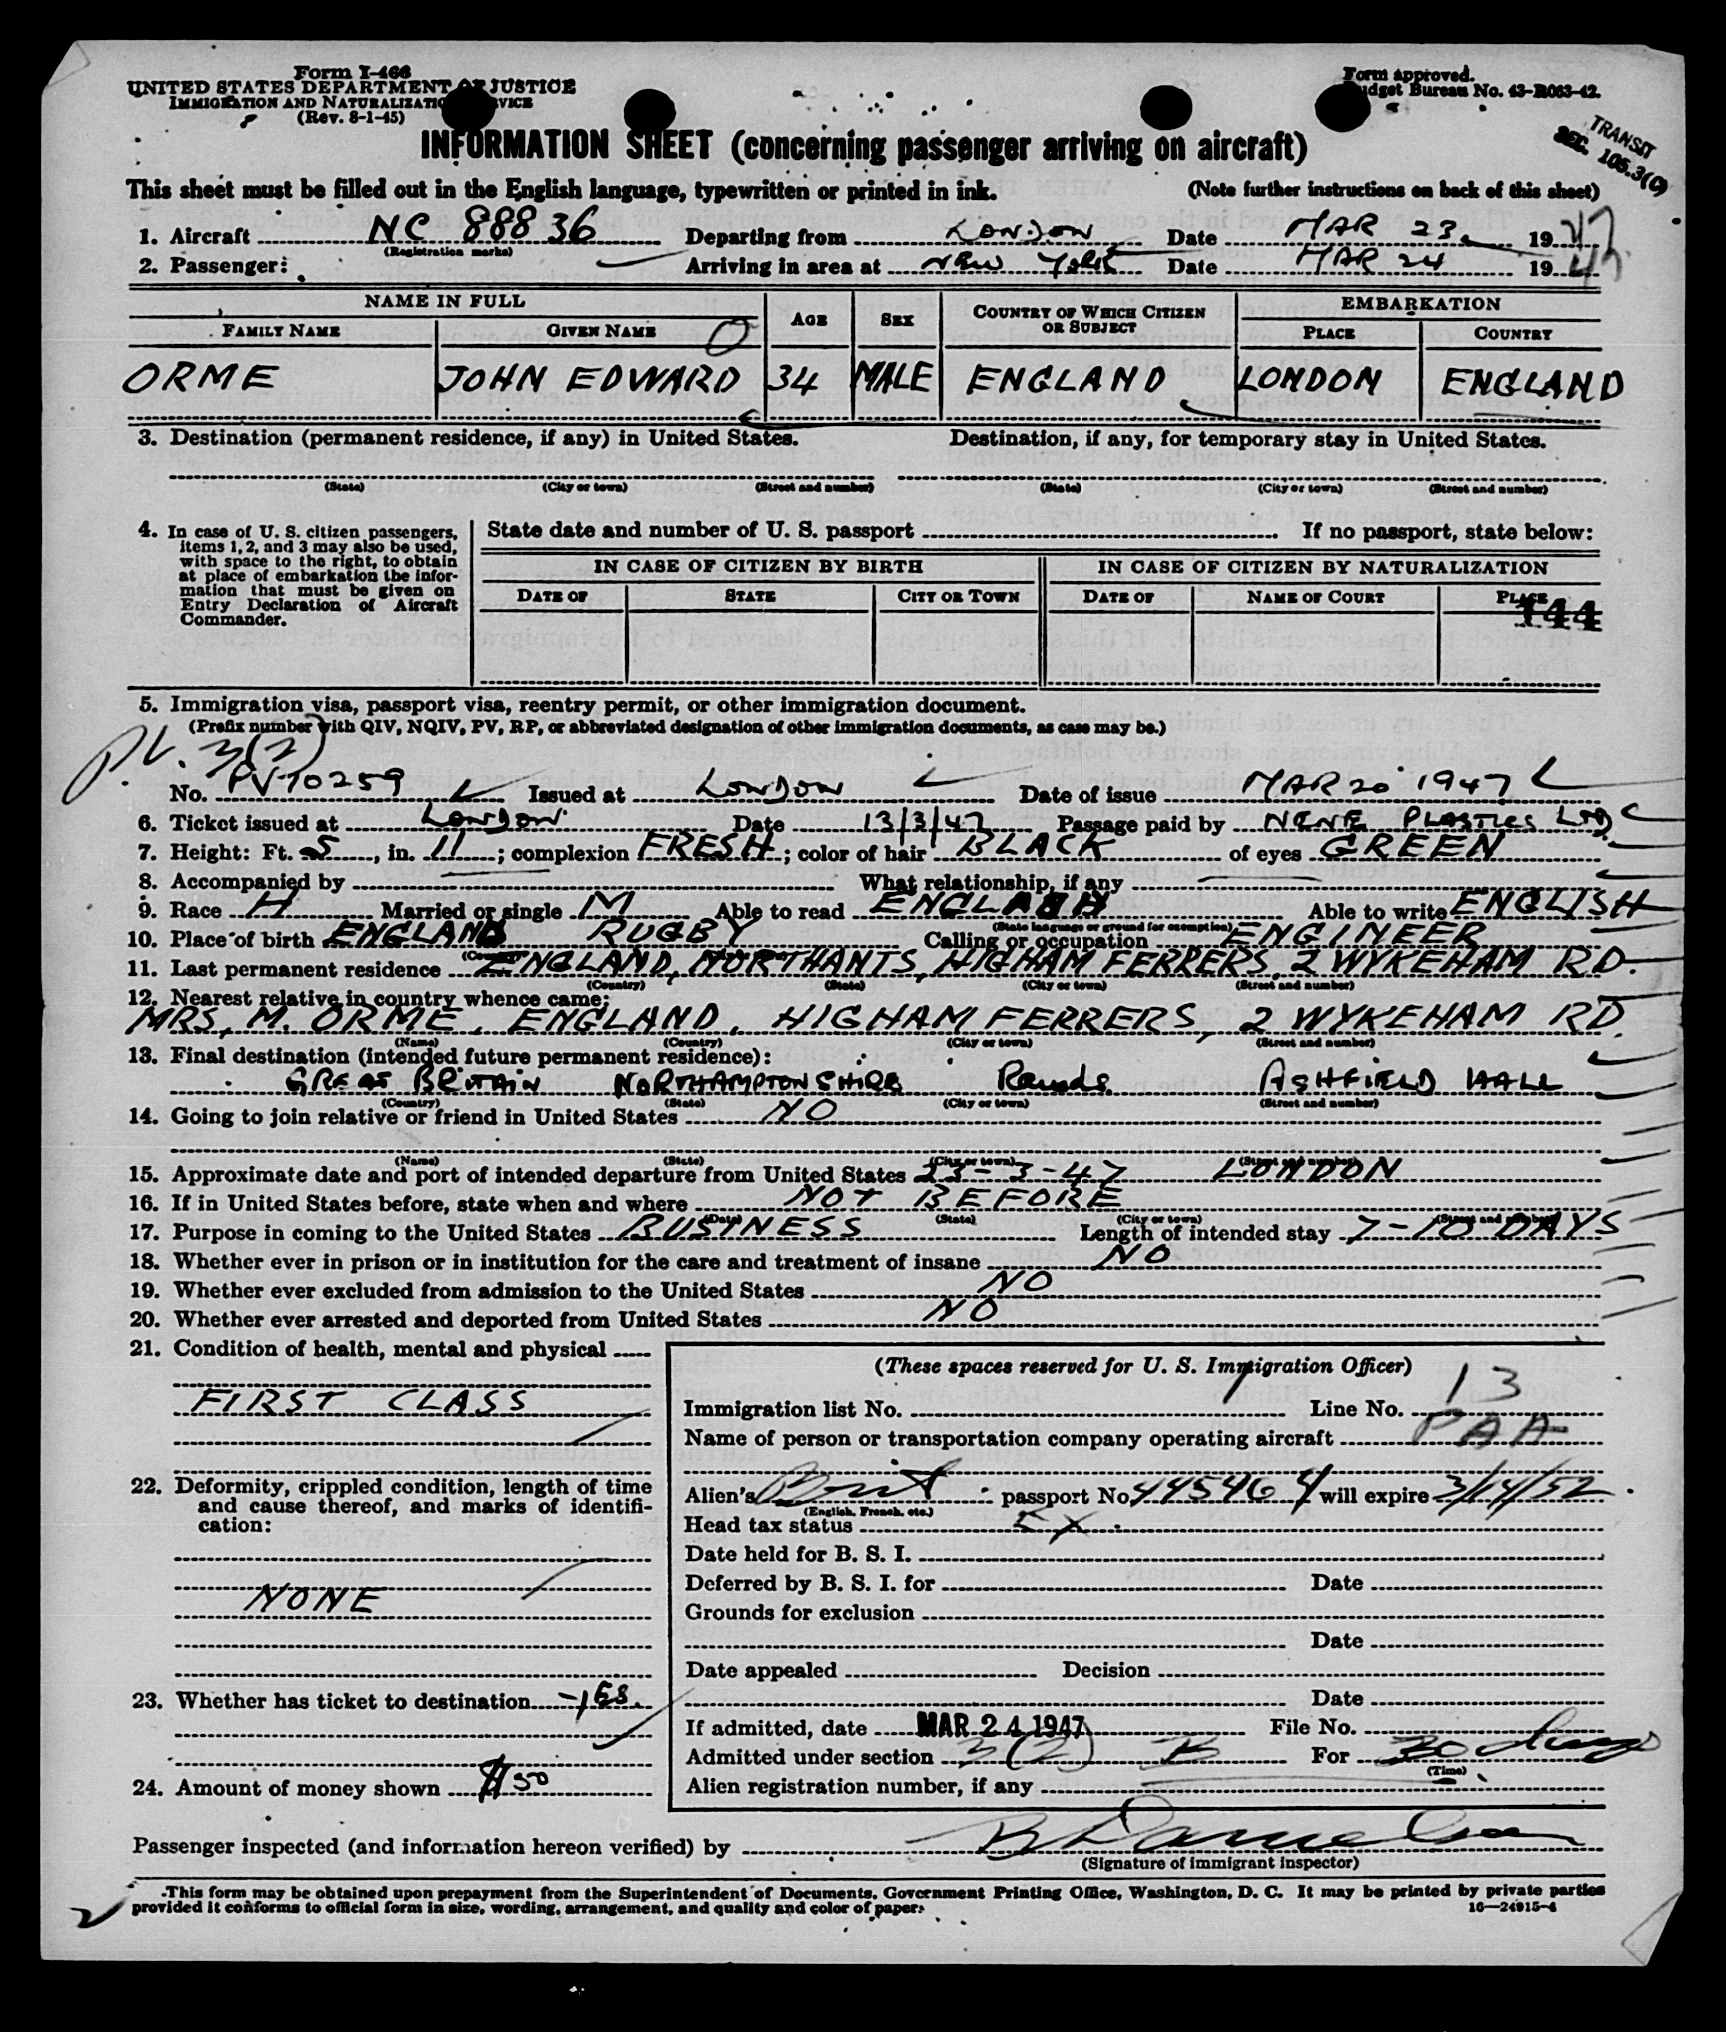 Form I-466
UNITED STATES DEPARTMENT OF JUSTICE
IMMIGRATION AND NATURALIZATION SERVICE
(Rev. 8-1-45)
Form approved.
Budget Bureau No. 43-R063-42.
TRANSIT
SEC. 105.3(C)
INFORMATION SHEET (concerning passenger arriving on aircraft)
This sheet must be filled out in the English language, typewritten or printed in ink. (Note further instructions on back of this sheet)
1. Aircraft NC 88836 Departing from LONDON Date MAR 23 1947
(Registration marks)
2. Passenger: Arriving in area at NEW YORK Date MAR 24 1947
NAME IN FULL AGE SEX COUNTRY OF WHICH CITIZEN OR SUBJECT EMBARKATION
FAMILY NAME GIVEN NAME PLACE COUNTRY
O
ORME JOHN EDWARD 34 MALE ENGLAND LONDON ENGLAND
3. Destination (permanent residence, if any) in United States. Destination, if any, for temporary stay in United States.
(State) (City or town) (Street and number) (State) (City or town) (Street and number)
4. In case of U. S. citizen passengers, items 1, 2, and 3 may also be used, with space to the right, to obtain at place of embarkation the information that must be given on Entry Declaration of Aircraft Commander.
State date and number of U. S. passport If no passport, state below:
IN CASE OF CITIZEN BY BIRTH IN CASE OF CITIZEN BY NATURALIZATION
DATE OF STATE CITY OR TOWN DATE OF NAME OF COURT PLACE
144
5. Immigration visa, passport visa, reentry permit, or other immigration document.
(Prefix number with QIV, NQIV, PV, RP, or abbreviated designation of other immigration documents, as case may be.)
P.V. 3(2)
No. PV 10259 Issued at LONDON Date of issue MAR 20 1947
6. Ticket issued at LONDON Date 13/3/47 Passage paid by NENE PLASTICS LTD.
7. Height: Ft. 5, in. 11; complexion FRESH; color of hair BLACK of eyes GREEN
8. Accompanied by What relationship, if any
9. Race Married or single M Able to read ENGLISH Able to write ENGLISH
(State language or ground for exemption)
10. Place of birth ENGLAND RUGBY Calling or occupation ENGINEER
11. Last permanent residence ENGLAND, NORTHANTS, HIGHAM FERRERS, 2 WYKEHAM RD.
(Country) (State) (City or town) (Street and number)
12. Nearest relative in country whence came:
MRS. M. ORME, ENGLAND, HIGHAM FERRERS, 2 WYKEHAM RD.
(Name) (Country) (City or town) (Street and number)
13. Final destination (intended future permanent residence):
GREAT BRITAIN NORTHAMPTONSHIRE Raunds ASHFIELD HALL
(Country) (State) (City or town) (Street and number)
14. Going to join relative or friend in United States NO
(Name) (State) (City or town) (Street and number)
15. Approximate date and port of intended departure from United States 23-3-47 LONDON
16. If in United States before, state when and where NOT BEFORE
(Date) (State) (City or town) (Street and number)
17. Purpose in coming to the United States BUSINESS Length of intended stay 7-10 DAYS
18. Whether ever in prison or in institution for the care and treatment of insane NO
19. Whether ever excluded from admission to the United States NO
20. Whether ever arrested and deported from United States NO
21. Condition of health, mental and physical
FIRST CLASS
22. Deformity, crippled condition, length of time
and cause thereof, and marks of identifi-
cation:
NONE
23. Whether has ticket to destination YES.
24. Amount of money shown $50
(These spaces reserved for U. S. Immigration Officer)
Immigration list No. 1 Line No. 13
Name of person or transportation company operating aircraft PAA
Alien's Brit passport No. will expire 3/14/52
(English, French, etc.)
Head tax status EX
Date held for B. S. I.
Deferred by B. S. I. for Date
Grounds for exclusion
Date
Date appealed Decision
Date
If admitted, date MAR 24 1947 File No.
Admitted under section 3(2) B For 30 days
(Time)
Alien registration number, if any
Passenger inspected (and information hereon verified) by
(Signature of immigrant inspector)
This form may be obtained upon prepayment from the Superintendent of Documents, Government Printing Office, Washington, D. C. It may be printed by private parties
provided it conforms to official form in size, wording, arrangement, and quality and color of paper.
16—24915-4